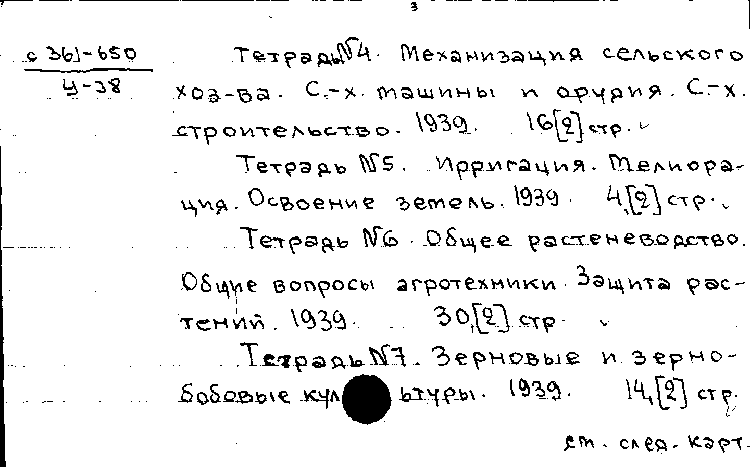 3
с 361-650
Ц-38
Тетрадь №4. Механизация сельского
хоз-ва. С.-х. машины и орудия. С.-х.
строительство. 1939. 16[2] стр.
Тетрадь №5. Ирригация. Мелиора-
ция. Освоение земель. 1939. 4,[2] стр.
Тетрадь №6. Общее растеневодство.
Общие вопросы агротехники. Защита рас-
тений. 1939. 30,[2] стр.
Тетрадь №7. Зерновые и зерно-
бобовые культуры. 1939. 14,[2] стр.
см. след. карт.